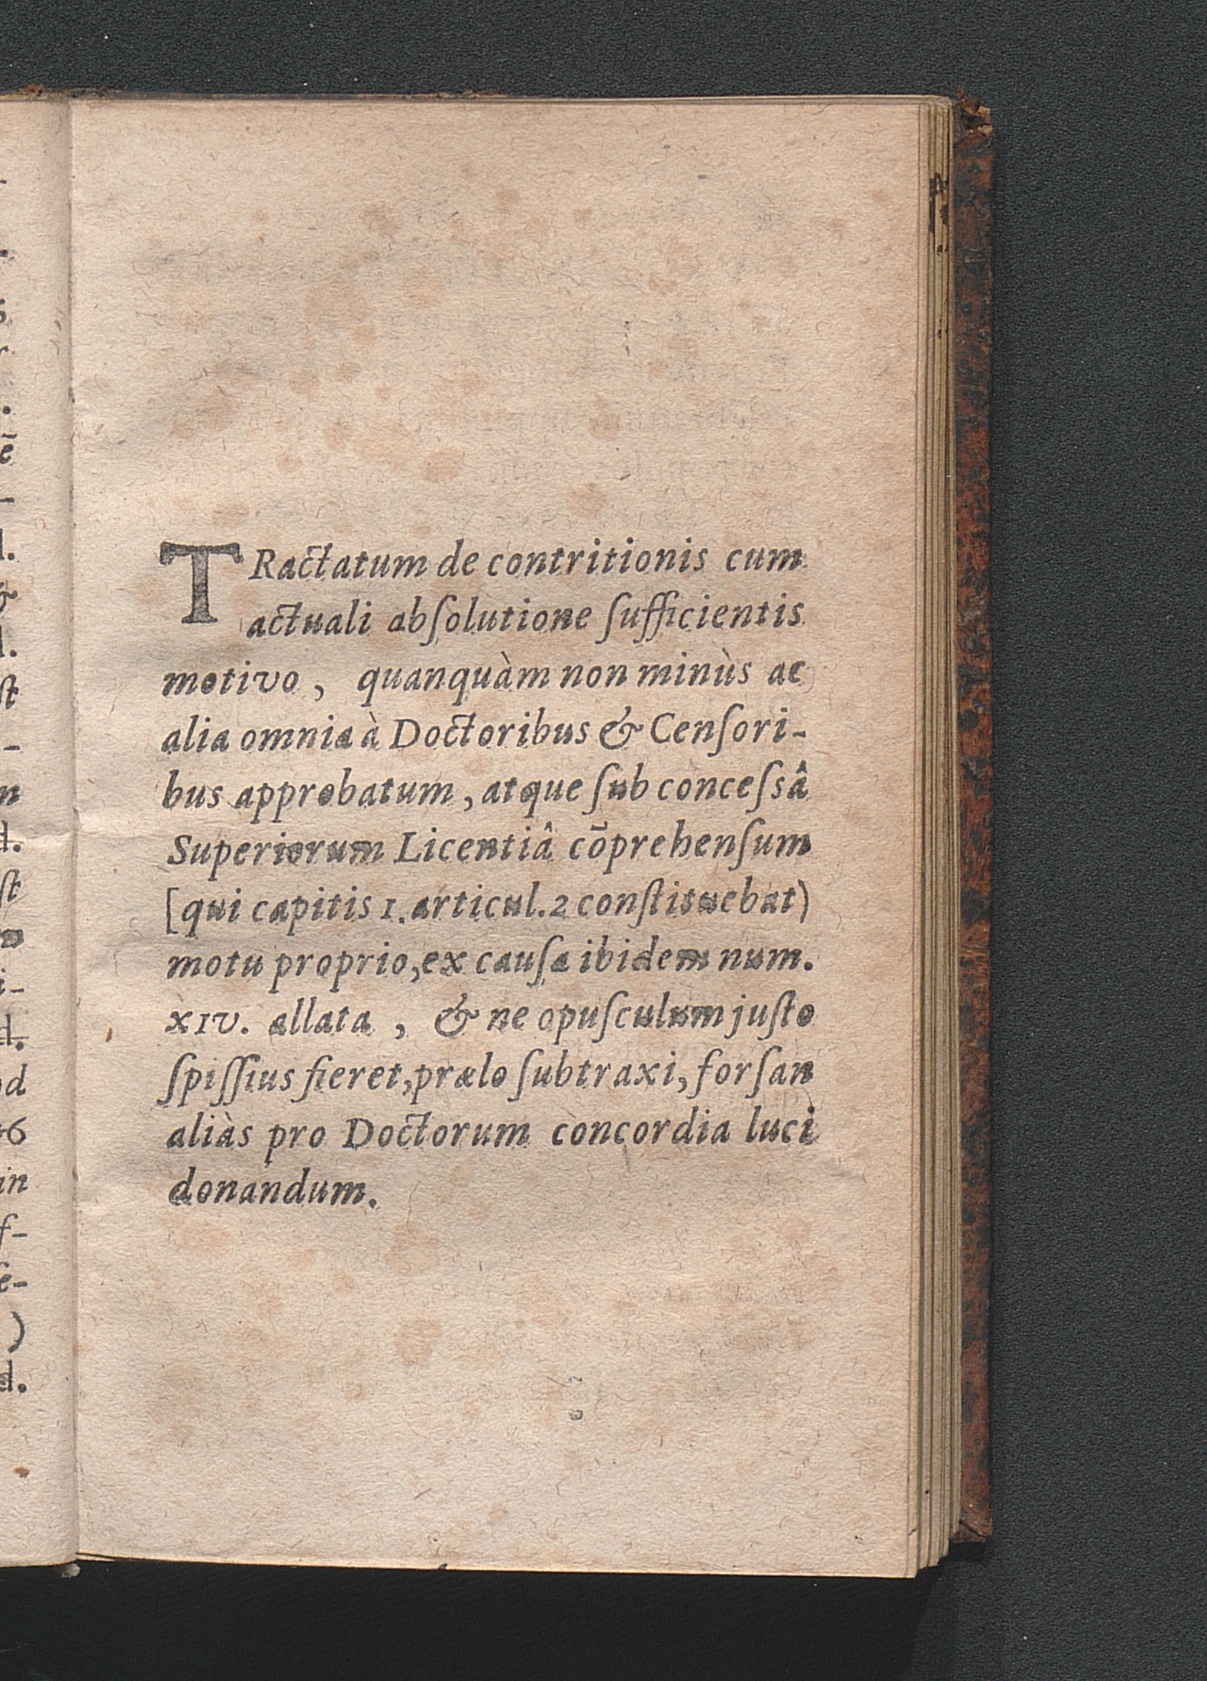 TRactatum de contritionis cum
actuali abſolutione ſufficientis
motivo, quanquàm non minùs ac
alia omnia à Doctoribus & Cenſori-
bus approbatum, atque ſub conceſsâ
Superiorum Licentiâ cōprehenſum
[qui capitis 1. articul. 2 conſtituebat)
motu proprio, ex cauſa ibidem num.
XIV. allata, & ne opuſculum juſto
ſpiſſius fieret, prælo ſubtraxi, forſan
aliàs pro Doctorum concordia luci
donandum.